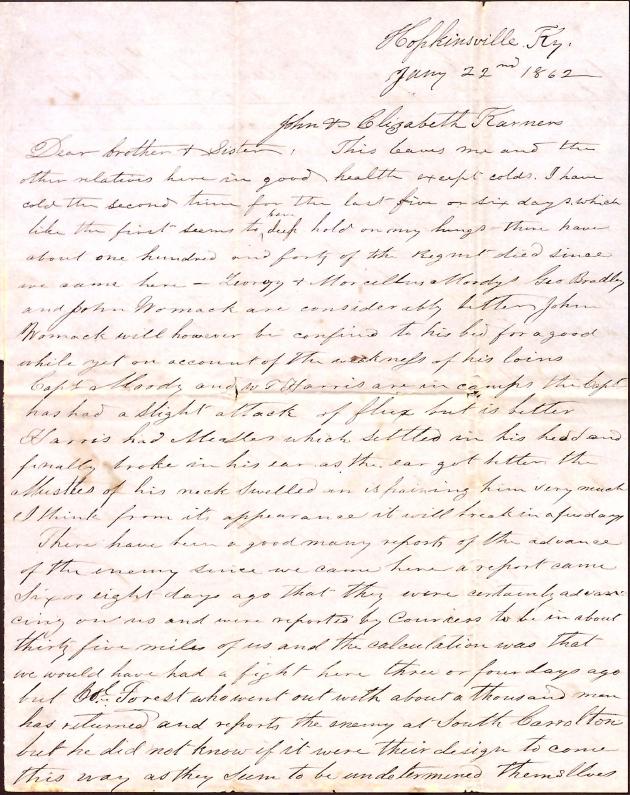 Hopkinsville, Ky.
Jany 22nd 1862
John & Elizabeth Karnes
Dear brother & Sister, This leaves me and the
other relatives here in good health except colds. I have
cold the second time for the last five or six days, which
like the first seems to have deep hold on my lungs there have
about one hundred and forty of the Regmt died since
we came here - Georgy & Marcellus Moodys Geo Bradley
and John Womack are considerably better John
Womack will however be confind to his bed for a good
while yet on account of the weakness of his loins
Capt Moody and W T Harris are in camps the Capt
has had a slight attack of flux but is better
Harris had Measles which settled in his head and
finally broke in his ear as the ear got better the
Mustles of his neck swelled an is paining him very much
I think from its appearance it will break in a few days
There have been a good many reports of the advance
of the enemy since we came here a report came
Six or eight days ago that they were certainly advan-
cing on us and were reported by Couriers to be in about
thirty five miles of us and the calculation was that
we would have had a fight here three or four days ago
but Col. Forest who went out with about a thousand men
has returned and reports the enemy at South Carrolton
but he did not know if it were their design to come
this way as they seem to be undetermined themselves